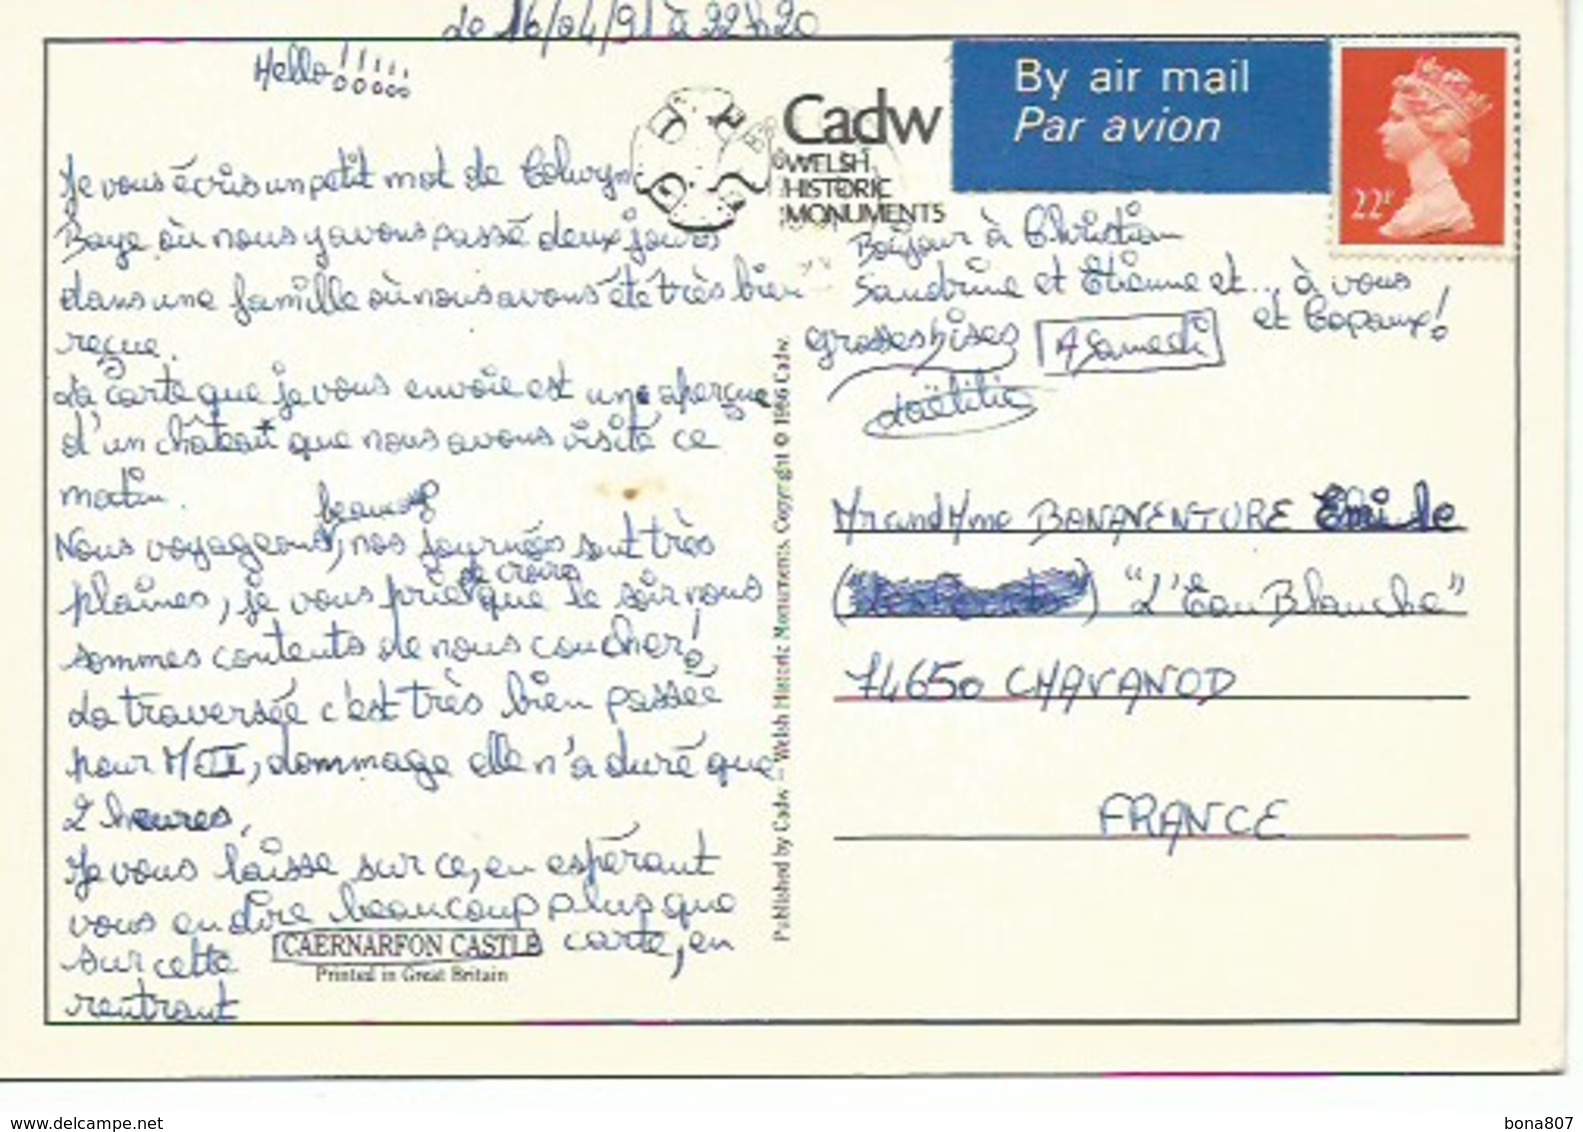 Le 16/04/91 à 22h20
Hello!!!!!
Je vous écris un petit mot de Colwyn
Baye où nous y avons passé deux jours
dans une famille où nous avons été très bien
reçue.
La carte que je vous envoie est une aperçue
d'un château que nous avons visité ce
matin.
beaucoup
Nous voyageons, nos journées sont très
de croire
plaines, je vous prie que le soir nous
sommes contents de nous coucher!
La traversée c'est très bien passée
pour moi, dommage elle n'a duré que
2 heures.
Je vous laisse sur ce, en espérant
vous en dire beaucoup plus que
sur cette carte, en
rentrant
CAERNARFON CASTLE
Printed in Great Britain
Published by Cadw – Welsh Historic Monuments. Copyright © 1986 Cadw.
Cadw
WELSH
HISTORIC
MONUMENTS
By air mail
Par avion
22P
Bonjour à Christian
Sandrine et Etienne et... à vous
et Copaux!
grosses bises
A Samedi
Laëtitia
Mr and Mme BONAVENTURE Emile
( ) "L'Eau Blanche"
74650 CHAVANOD
FRANCE
www.delcampe.net
bona807